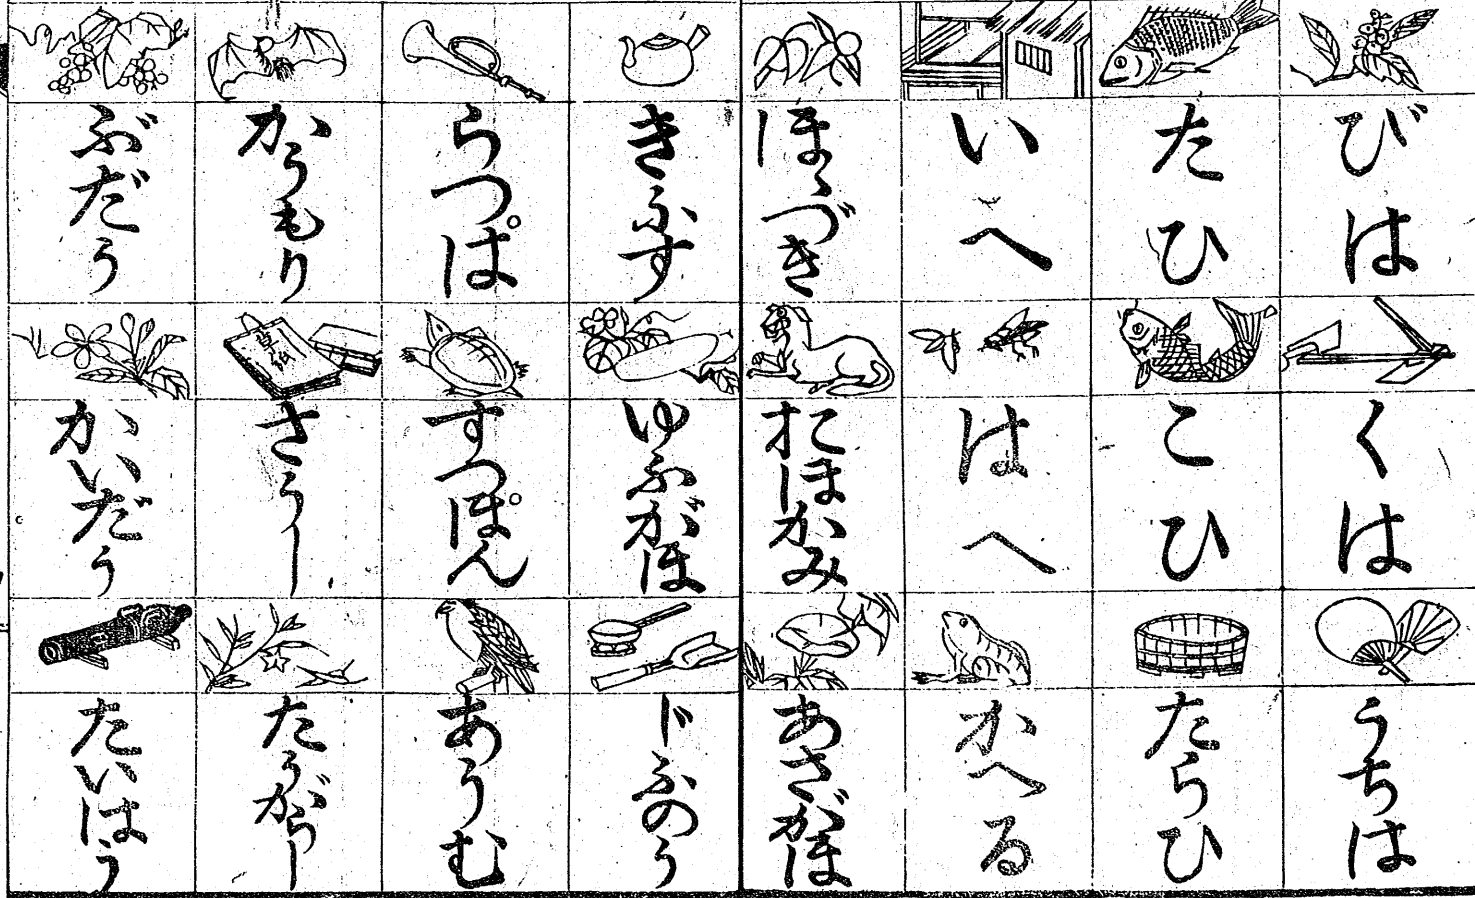 びは
くは
うちは
たひ
こひ
たらひ
いへ
はへ
かへる
ほゝづき
おほかみ
あさがほ
きふす
ゆふがほ
じふのう
らつぱ
すつぽん
あうむ
かうもり
草紙
さうし
たうがらし
ぶだう
かいだう
たいはう